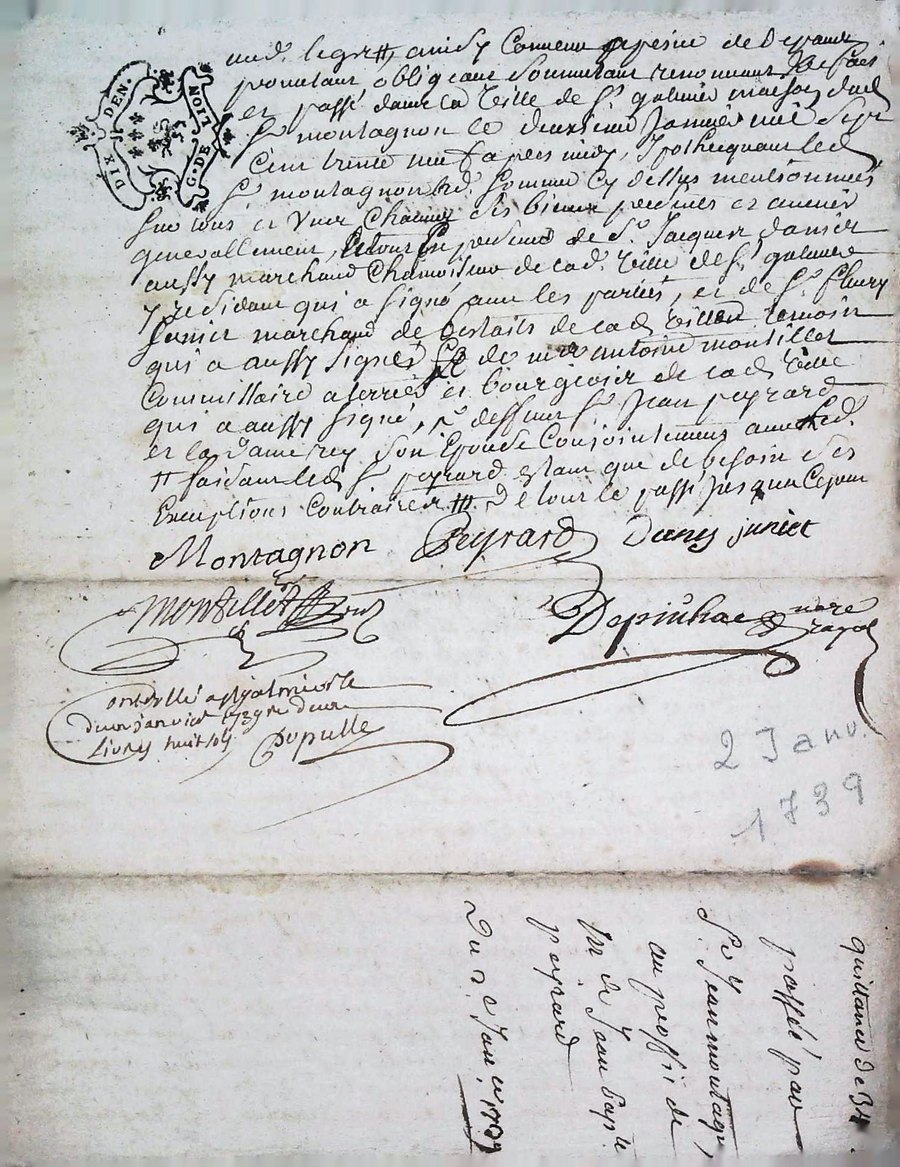 DIX DEN.
G. DE LION
ainsy Convenu a peine de Depandz
promettant, obligeant Soumettant renonceant
et passé dans la ville de St. galmier maison dud
Sr. montagnon le deuxieme Janvier mil Sept
Cent trente neuf apres midy, Ypothecquant led
Sr. montagnon Somme Cy dessus mentionnée
Sur tous et Vn Chacun Ses biens presents et avenir
generallement, presence de Sr. Jacques danier
aussy marchand Chamoiseur de lad. ville de St. galmier
y residant qui a Signé avec les parties, et de Sr. fleury
Junier marchand de bestails de lad ville temoin
qui a aussy Signé, et de mre antoine montillet
Commissaire a terriers et bourgeois de lad ville
qui a aussy Signé, deffunt Sr. Jean peyrard
et la dame rey Son Epouse Conjointement avec led.
faisant led Sr. peyrard, Estant que de besoin Ses
Exceptions Contraires De tout le passé Jusqua Ce jour
Montagnon Peyrard Dany juniet
Montillet
Depinhac nore royal
Controllé a St galmier le
deux janvier 1739 re deux
Livres huit sols Dupulle
2 Janv.
1739
quittance de 34
passée par
Sr. Jean montagn,
au proffit de
Mr de Jean Baptte
peyrard
Du 2e Janer 1739